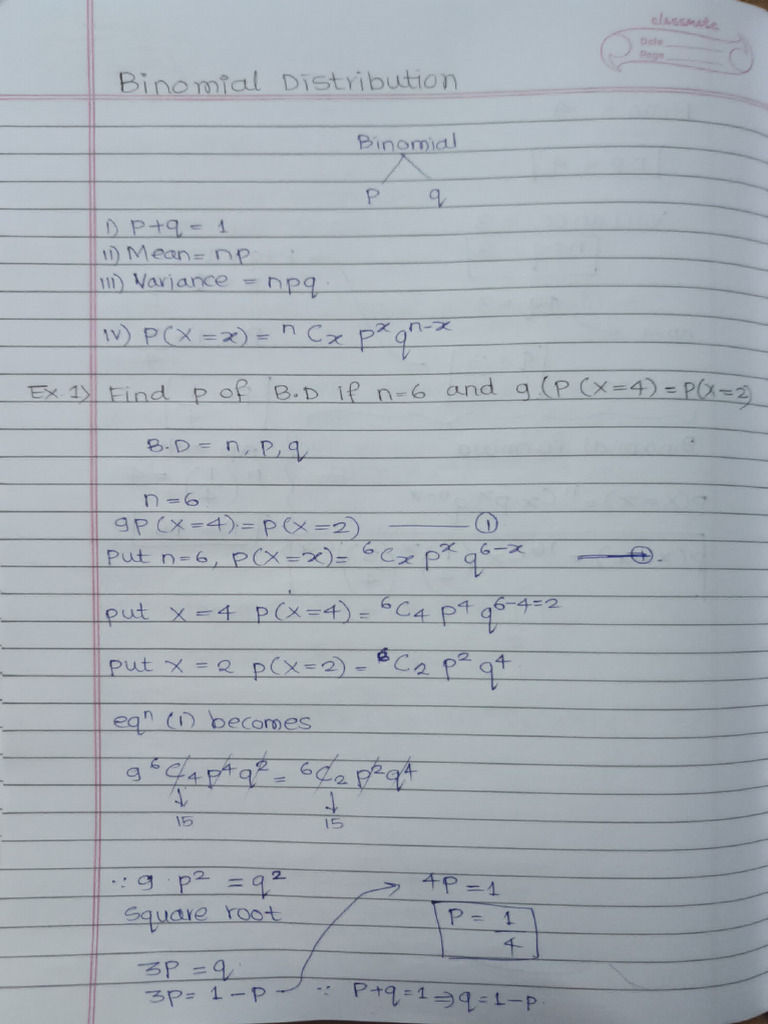 classmate
Date
Page
Binomial Distribution
Binomial
P q
i) P+q = 1
ii) Mean = np
iii) Variance = npq.
iv) P(X=x) = ⁿCx pˣqⁿ⁻ˣ
Ex.1) Find p of B.D if n=6 and 9.(P(X=4)=P(X=2)
B.D = n, p, q
n=6
9P(X=4)=P(X=2) —— ①
Put n=6, P(X=x)= ⁶Cx pˣ q⁶⁻ˣ
put x=4 P(X=4) = ⁶C₄ p⁴ q⁶⁻⁴⁼²
put x=2 p(X=2) = ⁶C₂ p² q⁴
eqⁿ (1) becomes
9 ⁶C₄p⁴q² = ⁶C₂ p²q⁴
↓ ↓
15 15
∵ 9 p² = q²
Square root
3P = q
3P = 1-P
4P = 1
P = 1/4
∵ P+q=1 ⇒ q=1-p.